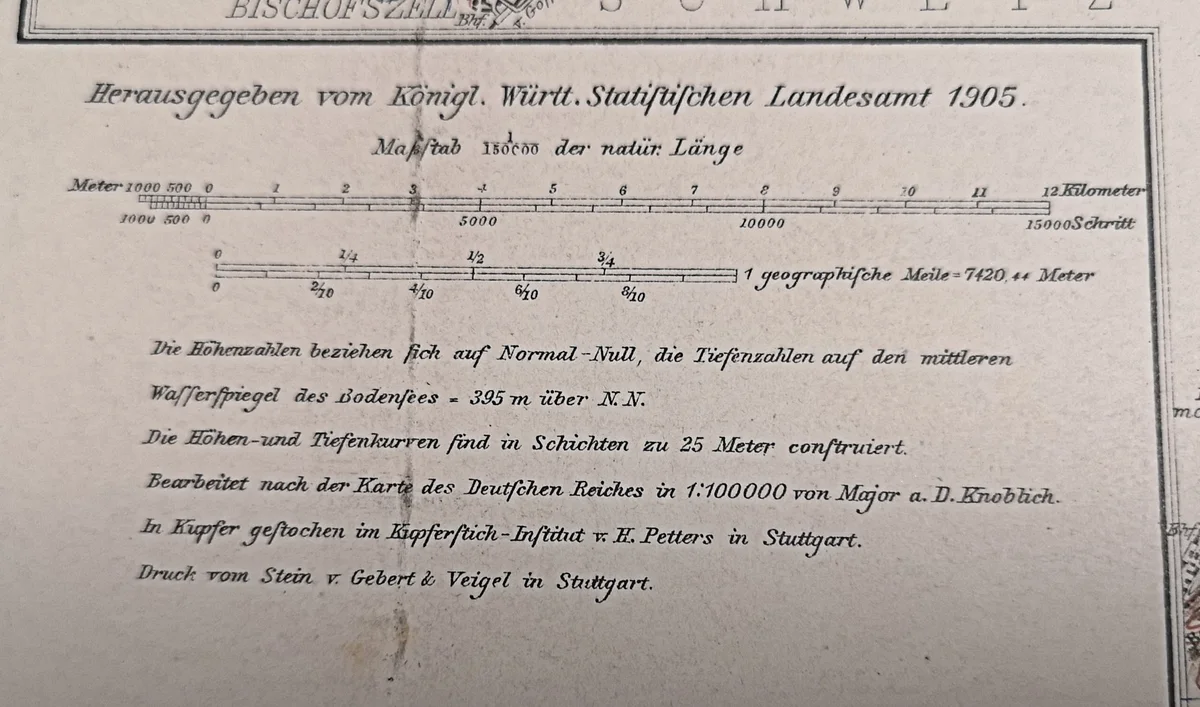 BISCHOFSZELL Bhf. v. Goſ
S C H W E I Z
Herausgegeben vom Königl. Württ. Statiſtiſchen Landesamt 1905.
Maßſtab 1/150000 der natür. Länge
Meter 1000 500 0 1 2 3 4 5 6 7 8 9 10 11 12 Kilometer
1000 500 0 5000 10000 15000 Schritt
0 1/4 1/2 3/4 1 geographiſche Meile = 7420,44 Meter
0 2/10 4/10 6/10 8/10
Die Höhenzahlen beziehen ſich auf Normal-Null, die Tiefenzahlen auf den mittleren
Waſſerſpiegel des Bodenſees = 395 m über N.N.
Die Höhen-und Tiefenkurven ſind in Schichten zu 25 Meter conſtruiert.
Bearbeitet nach der Karte des Deutſchen Reiches in 1:100000 von Major a. D. Knoblich.
In Kupfer geſtochen im Kupferſtich-Inſtitut v. H. Petters in Stuttgart.
Druck vom Stein v. Gebert & Veigel in Stuttgart.
Bhf.